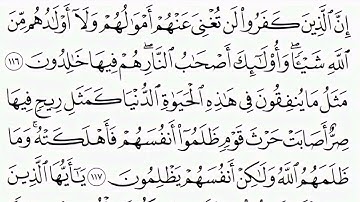 إِنَّ ٱلَّذِينَ كَفَرُوا۟ لَن تُغْنِىَ عَنْهُمْ أَمْوَٰلُهُمْ وَلَآ أَوْلَـٰدُهُم مِّنَ
ٱللَّهِ شَيْـًٔا ۖ وَأُو۟لَـٰٓئِكَ أَصْحَـٰبُ ٱلنَّارِ ۚ هُمْ فِيهَا خَـٰلِدُونَ ١١٦
مَثَلُ مَا يُنفِقُونَ فِى هَـٰذِهِ ٱلْحَيَوٰةِ ٱلدُّنْيَا كَمَثَلِ رِيحٍ فِيهَا
صِرٌّ أَصَابَتْ حَرْثَ قَوْمٍ ظَلَمُوٓا۟ أَنفُسَهُمْ فَأَهْلَكَتْهُ ۚ وَمَا
ظَلَمَهُمُ ٱللَّهُ وَلَـٰكِنْ أَنفُسَهُمْ يَظْلِمُونَ ١١٧ يَـٰٓأَيُّهَا ٱلَّذِينَ